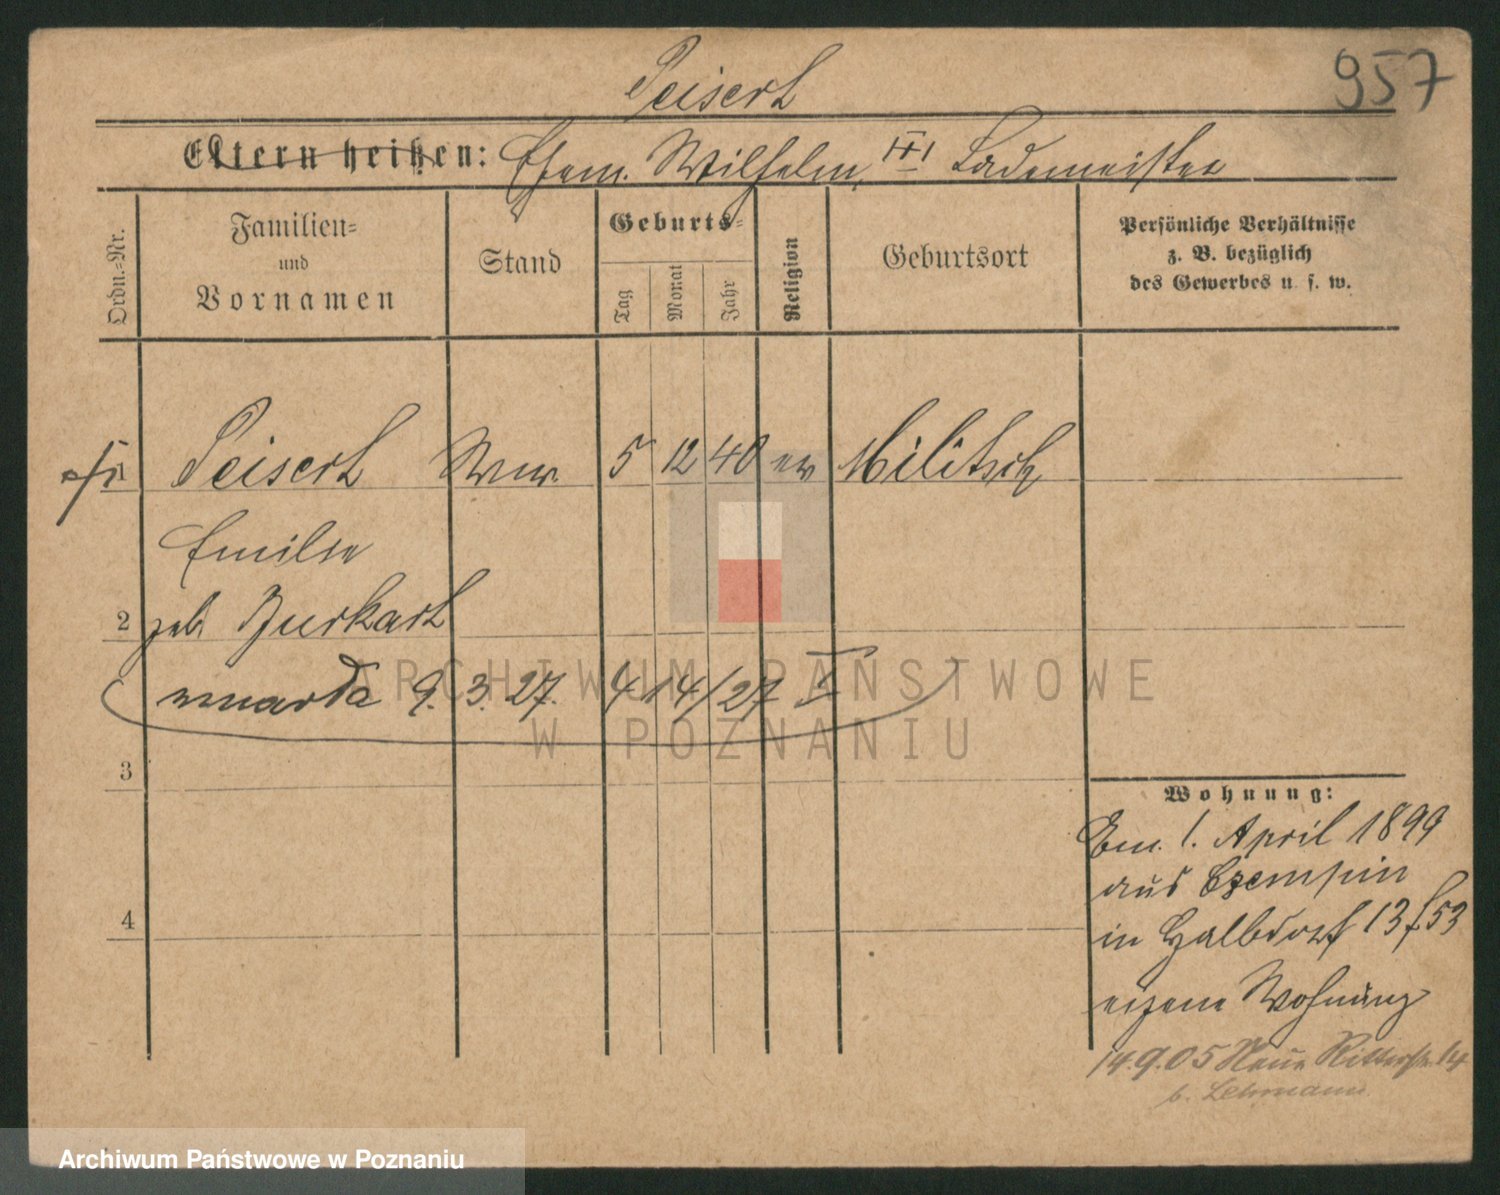 Peisert
957
Eltern heißen: Ehem. Wilhelm, III Lademeister
Ordn.=Nr.
Familien=
und
Vornamen
Stand
Geburts=
Tag
Monat
Jahr
Religion
Geburtsort
Persönliche Verhältnisse
z. B. bezüglich
des Gewerbes u. s. w.
1 Peisert Ww. 5 12 40 ev Militsch
Emilie
2 geb. Burkart
zmarła 9. 3. 27. 414/27 X
3
4
Wohnung:
Em. 1. April 1899
aus Czempin
in Halbdorf 13
eigene Wohnung
14.9.05 Neue Ritterstr. 14
b. Lehmann
ARCHIWUM PAŃSTWOWE
W POZNANIU
Archiwum Państwowe w Poznaniu